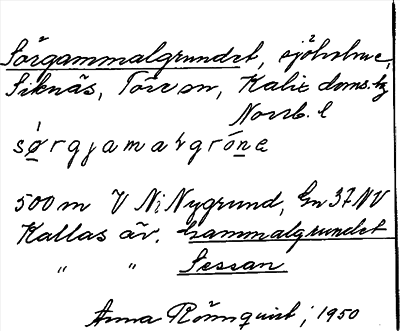 Sörgammalgrundet, sjöholme,
Siknäs, Töre sn, Kalix doms. hg
Norrb. l
sørgjamalgróne
500 m V Ni Nygrund, Gn 37 NV
Kallas äv. Gammalgrundet
" " Sessan
Anna Rönnquist, 1950